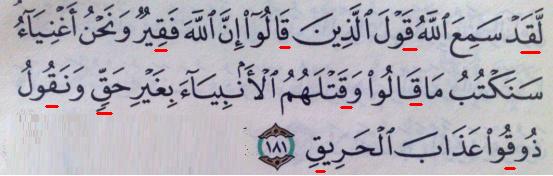 لَّقَدْ سَمِعَ ٱللَّهُ قَوْلَ ٱلَّذِينَ قَالُوٓا۟ إِنَّ ٱللَّهَ فَقِيرٌ وَنَحْنُ أَغْنِيَآءُ
سَنَكْتُبُ مَا قَالُوا۟ وَقَتْلَهُمُ ٱلْأَنۢبِيَآءَ بِغَيْرِ حَقٍّ وَنَقُولُ
ذُوقُوا۟ عَذَابَ ٱلْحَرِيقِ ١٨١